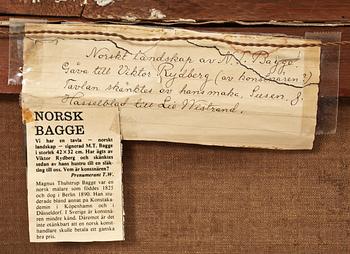 Norskt landskap av M. T. Bagge.
Gåva till Viktor Rydberg (av konstnären?)
Tavlan skänktes av hans maka, Susen. f.
Hasselblad till Lis Westrand.
NORSK
BAGGE
Vi har en tavla — norskt
landskap — signerad M.T. Bagge
i storlek 42×32 cm. Har ägts av
Viktor Rydberg och skänktes
sedan av hans hustru till en släk-
ting till oss. Vem är konstnären?
Prenumerant T.W.
Magnus Thulstrup Bagge var en
norsk målare som föddes 1825
och dog i Berlin 1890. Han stu-
derade bland annat på Konstaka-
demin i Köpenhamn och i
Düsseldorf. I Sverige är konstnä-
ren mindre känd. Däremot är det
inte otänkbart att en norsk konst-
handlare skulle betala ett ganska
bra pris.